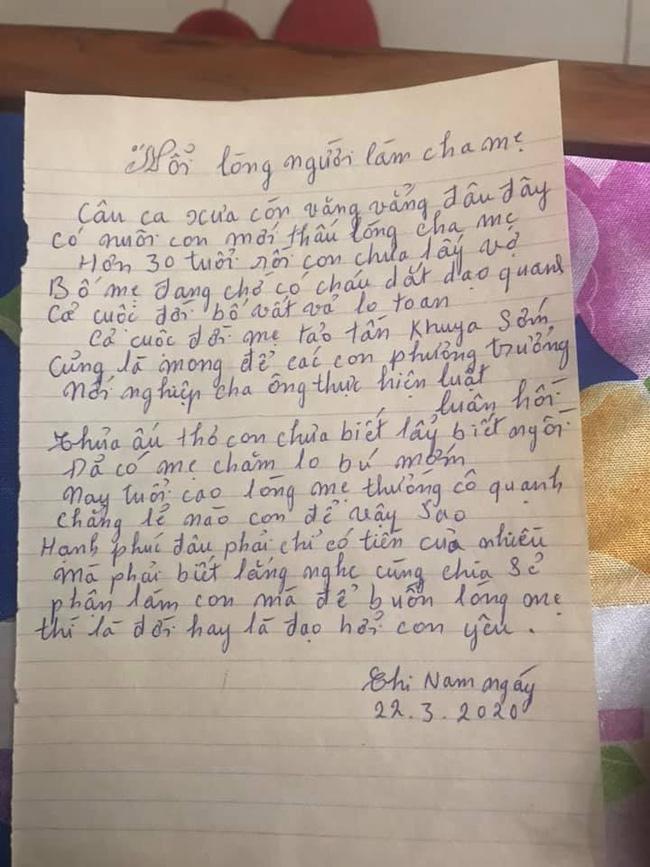 "Nổi lòng người làm cha mẹ
Câu ca xưa còn văng vẳng đâu đây
có nuôi con mới thấu lòng cha mẹ
Hơn 30 tuổi rồi con chưa lấy vợ
Bố mẹ đang chờ có cháu dắt dạo quanh
Cả cuộc đời bố vất vả lo toan
Cả cuộc đời mẹ tảo tần khuya sớm
Củng là mong để các con phương trưởng
Nối nghiệp cha ông thực hiện luật
luân hồi
Thủa ấu thơ con chưa biết lẩy biết ngồi
Đả có mẹ chăm lo bú mớm
Nay tuổi cao lòng mẹ thường cô quạnh
chẳng lẻ nào con để vậy sao
Hạnh phúc đâu phải chỉ có tiền của nhiều
mà phải biết lắng nghe cùng chia sẻ
phận làm con mà để buồn lòng mẹ
thì là đời hay là đạo hởi con yêu.
Chi Nam ngày
22.3.2020